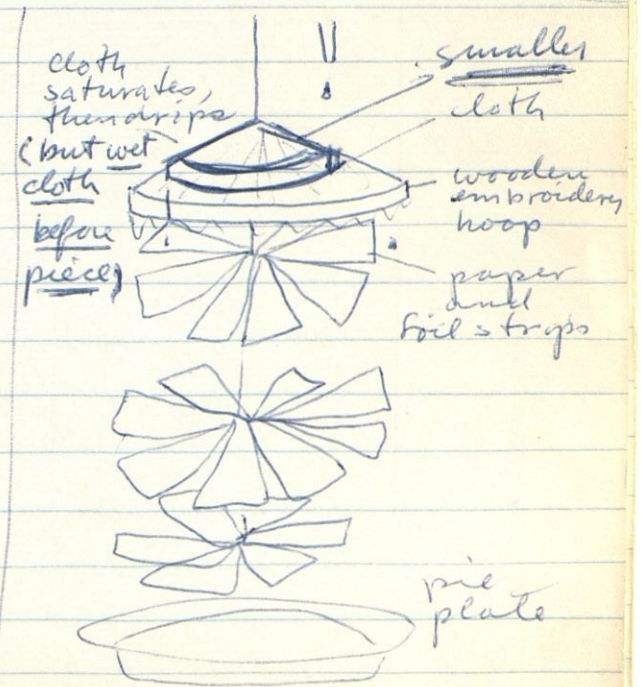 cloth
saturates,
then drips
(but wet
cloth
before
piece)
smaller
cloth
wooden
embroidery
hoop
paper
and
foil strips
pie
plate